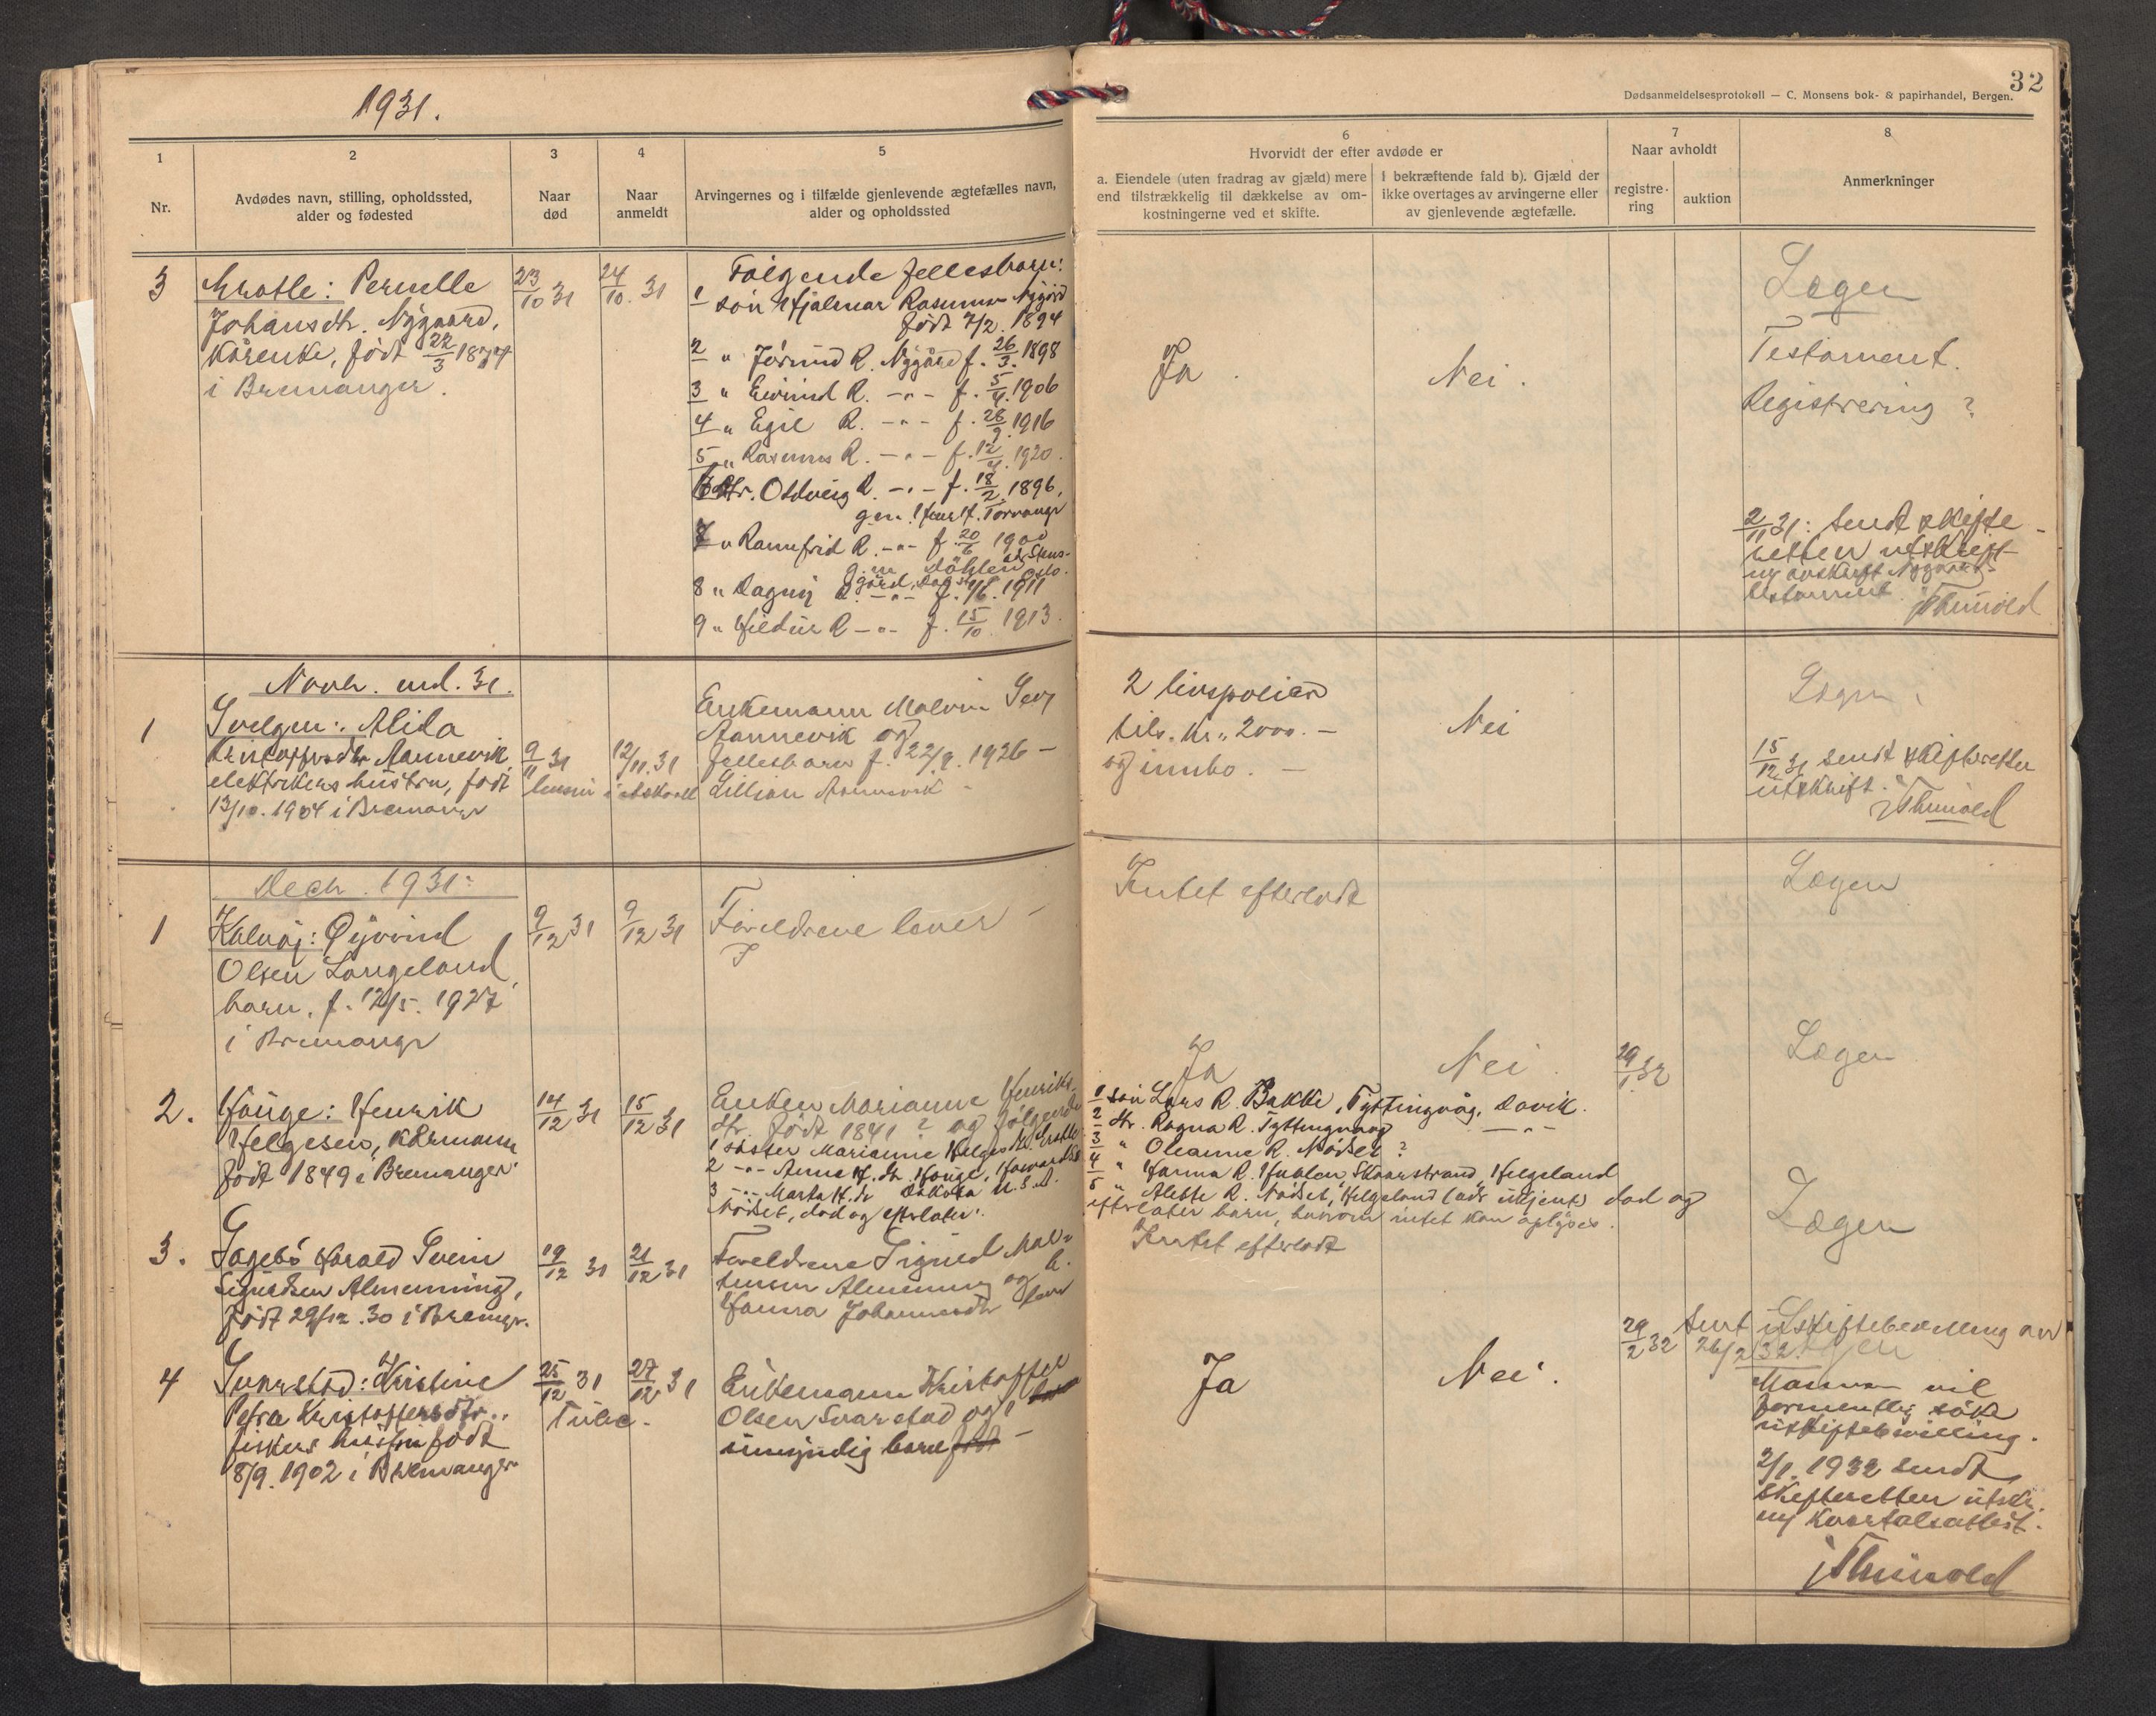 1931.
1
2
3
4
5
Nr.
Avdødes navn, stilling, opholdssted,
alder og fødested
Naar
død
Naar
anmeldt
Arvingernes og i tilfælde gjenlevende ægtefælles navn,
alder og opholdssted
3
Grotle: Pernelle
Johansdtr. Nygaard,
Kårenke, født 22/3 1874
i Bremanger.
23/10 31
24/10. 31
Følgende fellesbarn:
1 søn Hjalmar Rasmus Nygård
født 7/2. 1894
2 " Jørund R. Nygård f. 26/3. 1898
3 " Eivind R. -"- f. 5/4. 1906
4 " Egil R. -"- f. 28/9. 1916
5 " Rasmus R. -"- f. 12/4. 1920.
6 dtr. Oldveig R. -"- f. 18/2. 1896,
7 " Rannfrid R. -"- f. 20/6 1900
g.m. Dåhlen
8 " Dagny R. -"- f. 1/6. 1911
9 " Hildur R -"- f. 15/10. 1913.
Novb. md. 31.
1
Svelgen: Alida
Kristoffersdtr Aannevik
elektrikers hustru, født
13/10. 1904 i Bremanger
9/11 31
12/11. 31
Enkemann Malvin
Aannevik og
fellesbarn f. 22/8. 1926 -
Lillian Aannevik -
Decb. 1931:
1
Kalvåg: Øyvind
Olsen Langeland,
barn, f. 12/5. 1927
i Bremanger
9/12 31
9/12 31
Foreldrene lever -
2.
Hauge: Henrik
Helgesen, kårmann
født 1849 i Bremanger.
14/12 31
15/12 31
Enken Marianne Henriks-
dtr. født 1841? og følgende
1 søster Marianne Helgesdtr. Grotle
2 -"- Anne H. dtr. Hauge,
3 -"- Marta H. dr Dakota U.S.A.
Nødset, død og efterlater:
3.
Sagebø Harald Svein
Sigurdsen Almenning,
født 29/12. 30 i Bremgr.
19/12 31
21/12 31
Foreldrene Sigurd
Almenning og h.
Hanna Johannesdtr lever
4
Svarstad: Kristine
Petra Kristoffersdtr.,
fiskers hustru født
8/9. 1902 i Bremanger
25/12 31
27/12 31
Tube.
Enkemann Kristoffer
Olsen Svarstad og 1
umyndig barn født -
32
Dødsanmeldelsesprotokoll — C. Monsens bok- & papirhandel, Bergen.
6
Hvorvidt der efter avdøde er
a. Eiendele (uten fradrag av gjæld) mere
end tilstrækkelig til dækkelse av om-
kostningerne ved et skifte.
I bekræftende fald b). Gjæld der
ikke overtages av arvingerne eller
av gjenlevende ægtefælle.
7
Naar avholdt
registre-
ring
auktion
8
Anmerkninger
Ja.
Nei.
Lægen
Testament.
Registrering?
2/11 31: Sendt skifte-
retten utskrift
m/ avskrift Nygaards
testament.
2 livspoliser
tils. kr. 2000.-
og innbo. -
Nei
Lægen
15/12 31 sendt skifteretten
utskrift.
Intet efterladt
Lægen
Ja
Nei.
29/1 32
Lægen
1 søn Lars R. Bakke, Tyttingvåg, Davik.
2 dtr. Ragna R. Tyttingvaag -"-
3 " Oleanne R. Nødset?
4 " Hanna R. Skaarstrand, Helgeland
5 " Alette R. Nødset, Helgeland (adr ukjent) død og
efterlater barn, hvorom intet kan oplyses.
Intet efterladt
Lægen
Ja
Nei.
29/2 32
Sent uskiftebevilling av
26/2 32.
Lægen
Mannen vil
formentlig søke
uskiftebevilling.
2/1. 1932 sendt
skifteretten utskr.
m/ kvartalsattest.